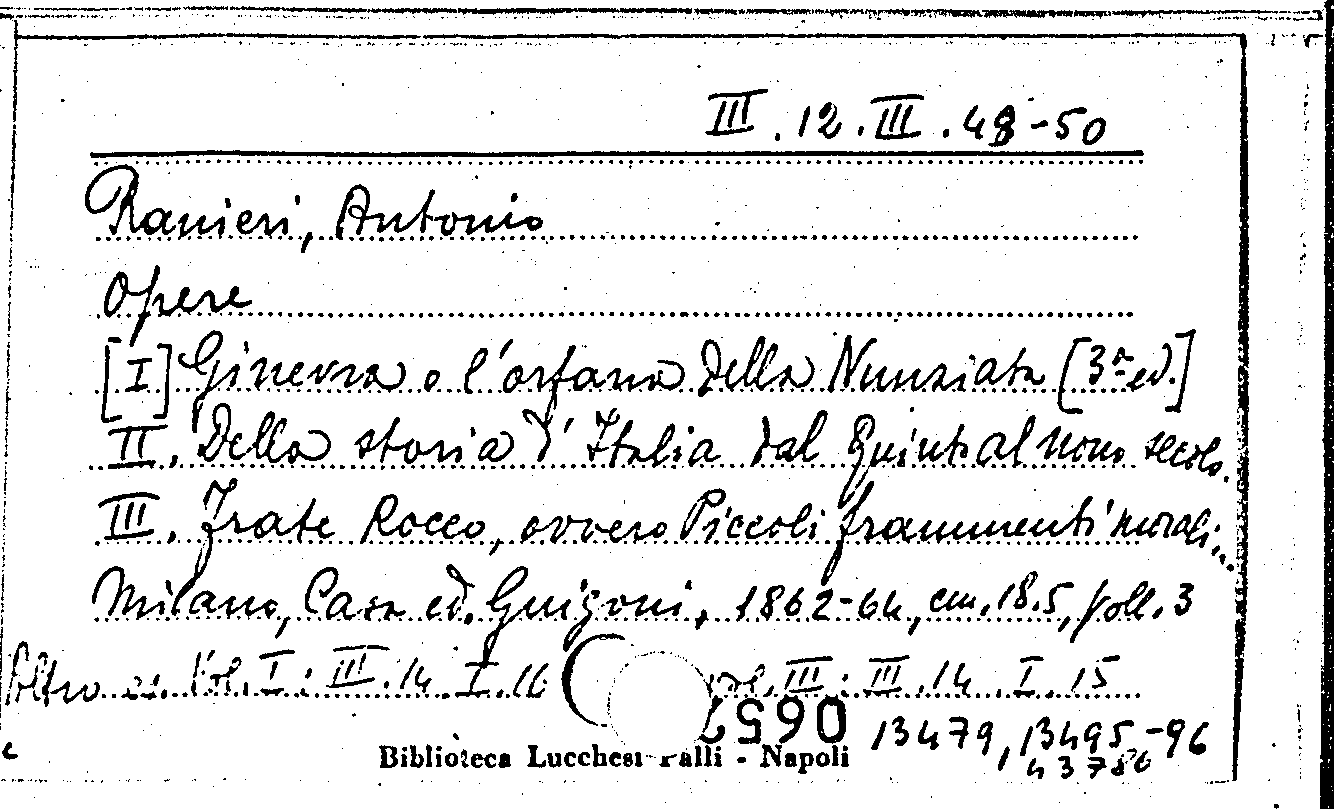 III.12.III.48-50
Ranieri, Antonio
Opere
[I] Ginevra o l'orfana della Nunziata [3ª ed.]
II. Della storia d'Italia dal Quinto al nono secolo.
III. Frate Rocco, ovvero Piccoli frammenti morali...
Milano, Casa ed. Guigoni, 1862-64, cm. 18.5, voll. 3
Altro es. Vol. I: III.14.I.16 vol. III: III.14.I.15
0652
13479, 13495-96
43786
Biblioteca Lucchesi Palli - Napoli